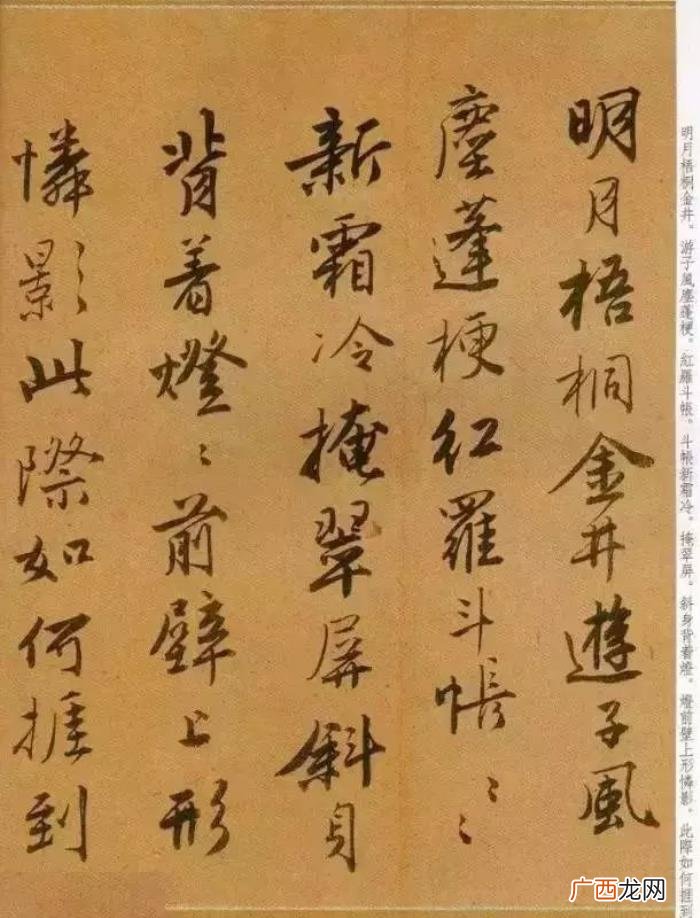 明月梧桐金井遊子風
塵蓬梗紅羅斗帳〻
新霜冷掩翠屏斜身
背着燈〻前壁上形
憐影此際如何捱到
明月梧桐金井。游子風塵蓬梗。紅羅斗帳。斗帳新霜冷。掩翠屏。斜身背着燈。燈前壁上形憐影。此際如何捱到
广西龙网